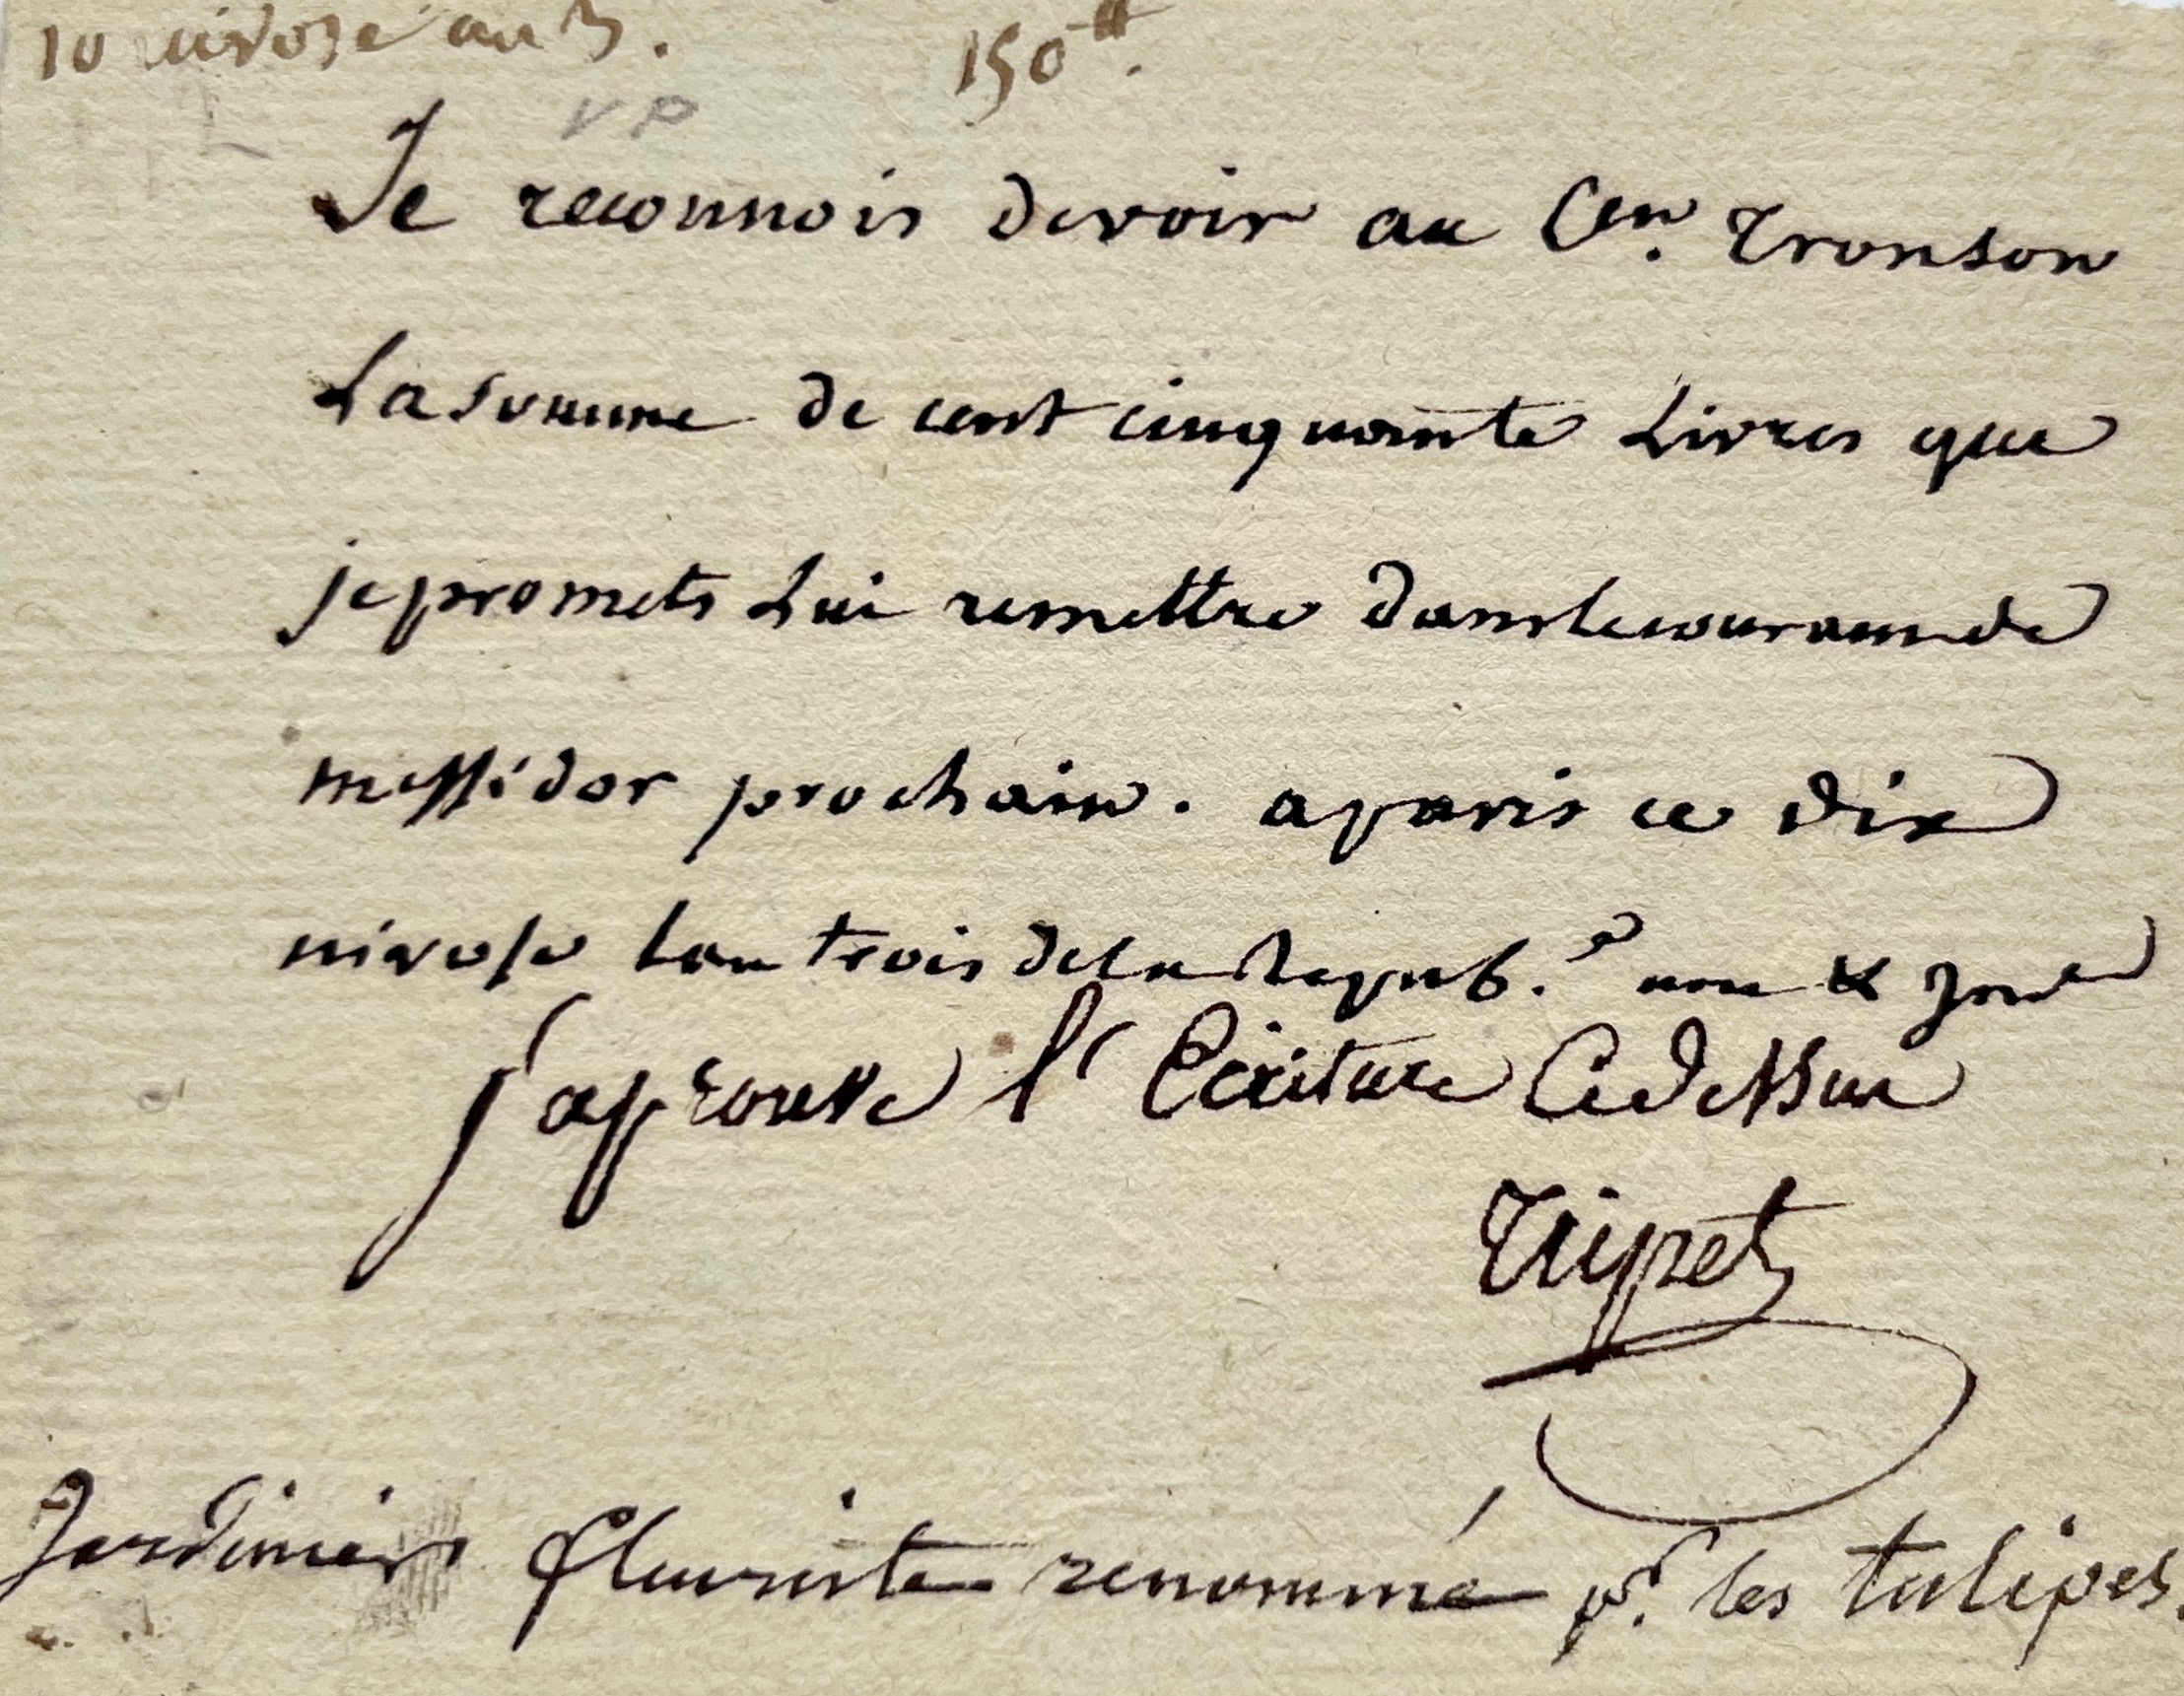 10 nivose an 3. 150 ₶.
V P
Je reconnois devoir au Cen. Tronson
La somme de cent cinquante Livres que
je promets Lui remettre dans le couranr de
messidor prochain. a paris ce dix
nivose Lan trois dela Repub.e une & Ind
J'approuve l'Ecriture Cedessus
Tripet
Jardinier fleuriste renommé pr. les tulipes.